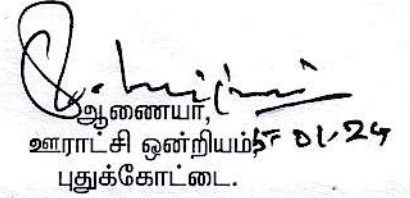 ஆணையர்,
ஊராட்சி ஒன்றியம், 5-01-24
புதுக்கோட்டை.